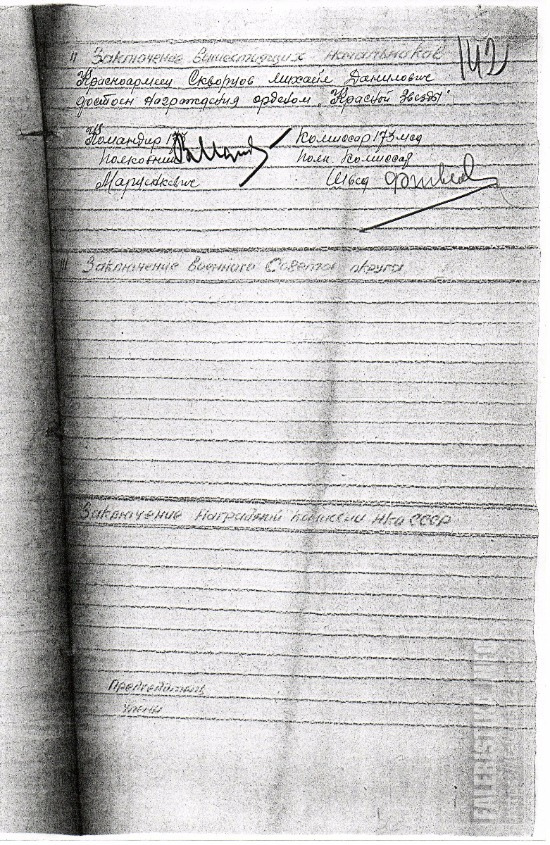 142
II Заключение вышестоящих начальников
Красноармеец Скворцов Михаил Данилович
достоин награждения орденом „Красной Звезды"
Командир Комиссар 173 мсд
полковник полк. комиссар
Мартинкевич Швед
III Заключение военного Совета округа
Заключение наградной комиссии НКО СССР
Председатель
Члены
FALERISTIKA.INFO